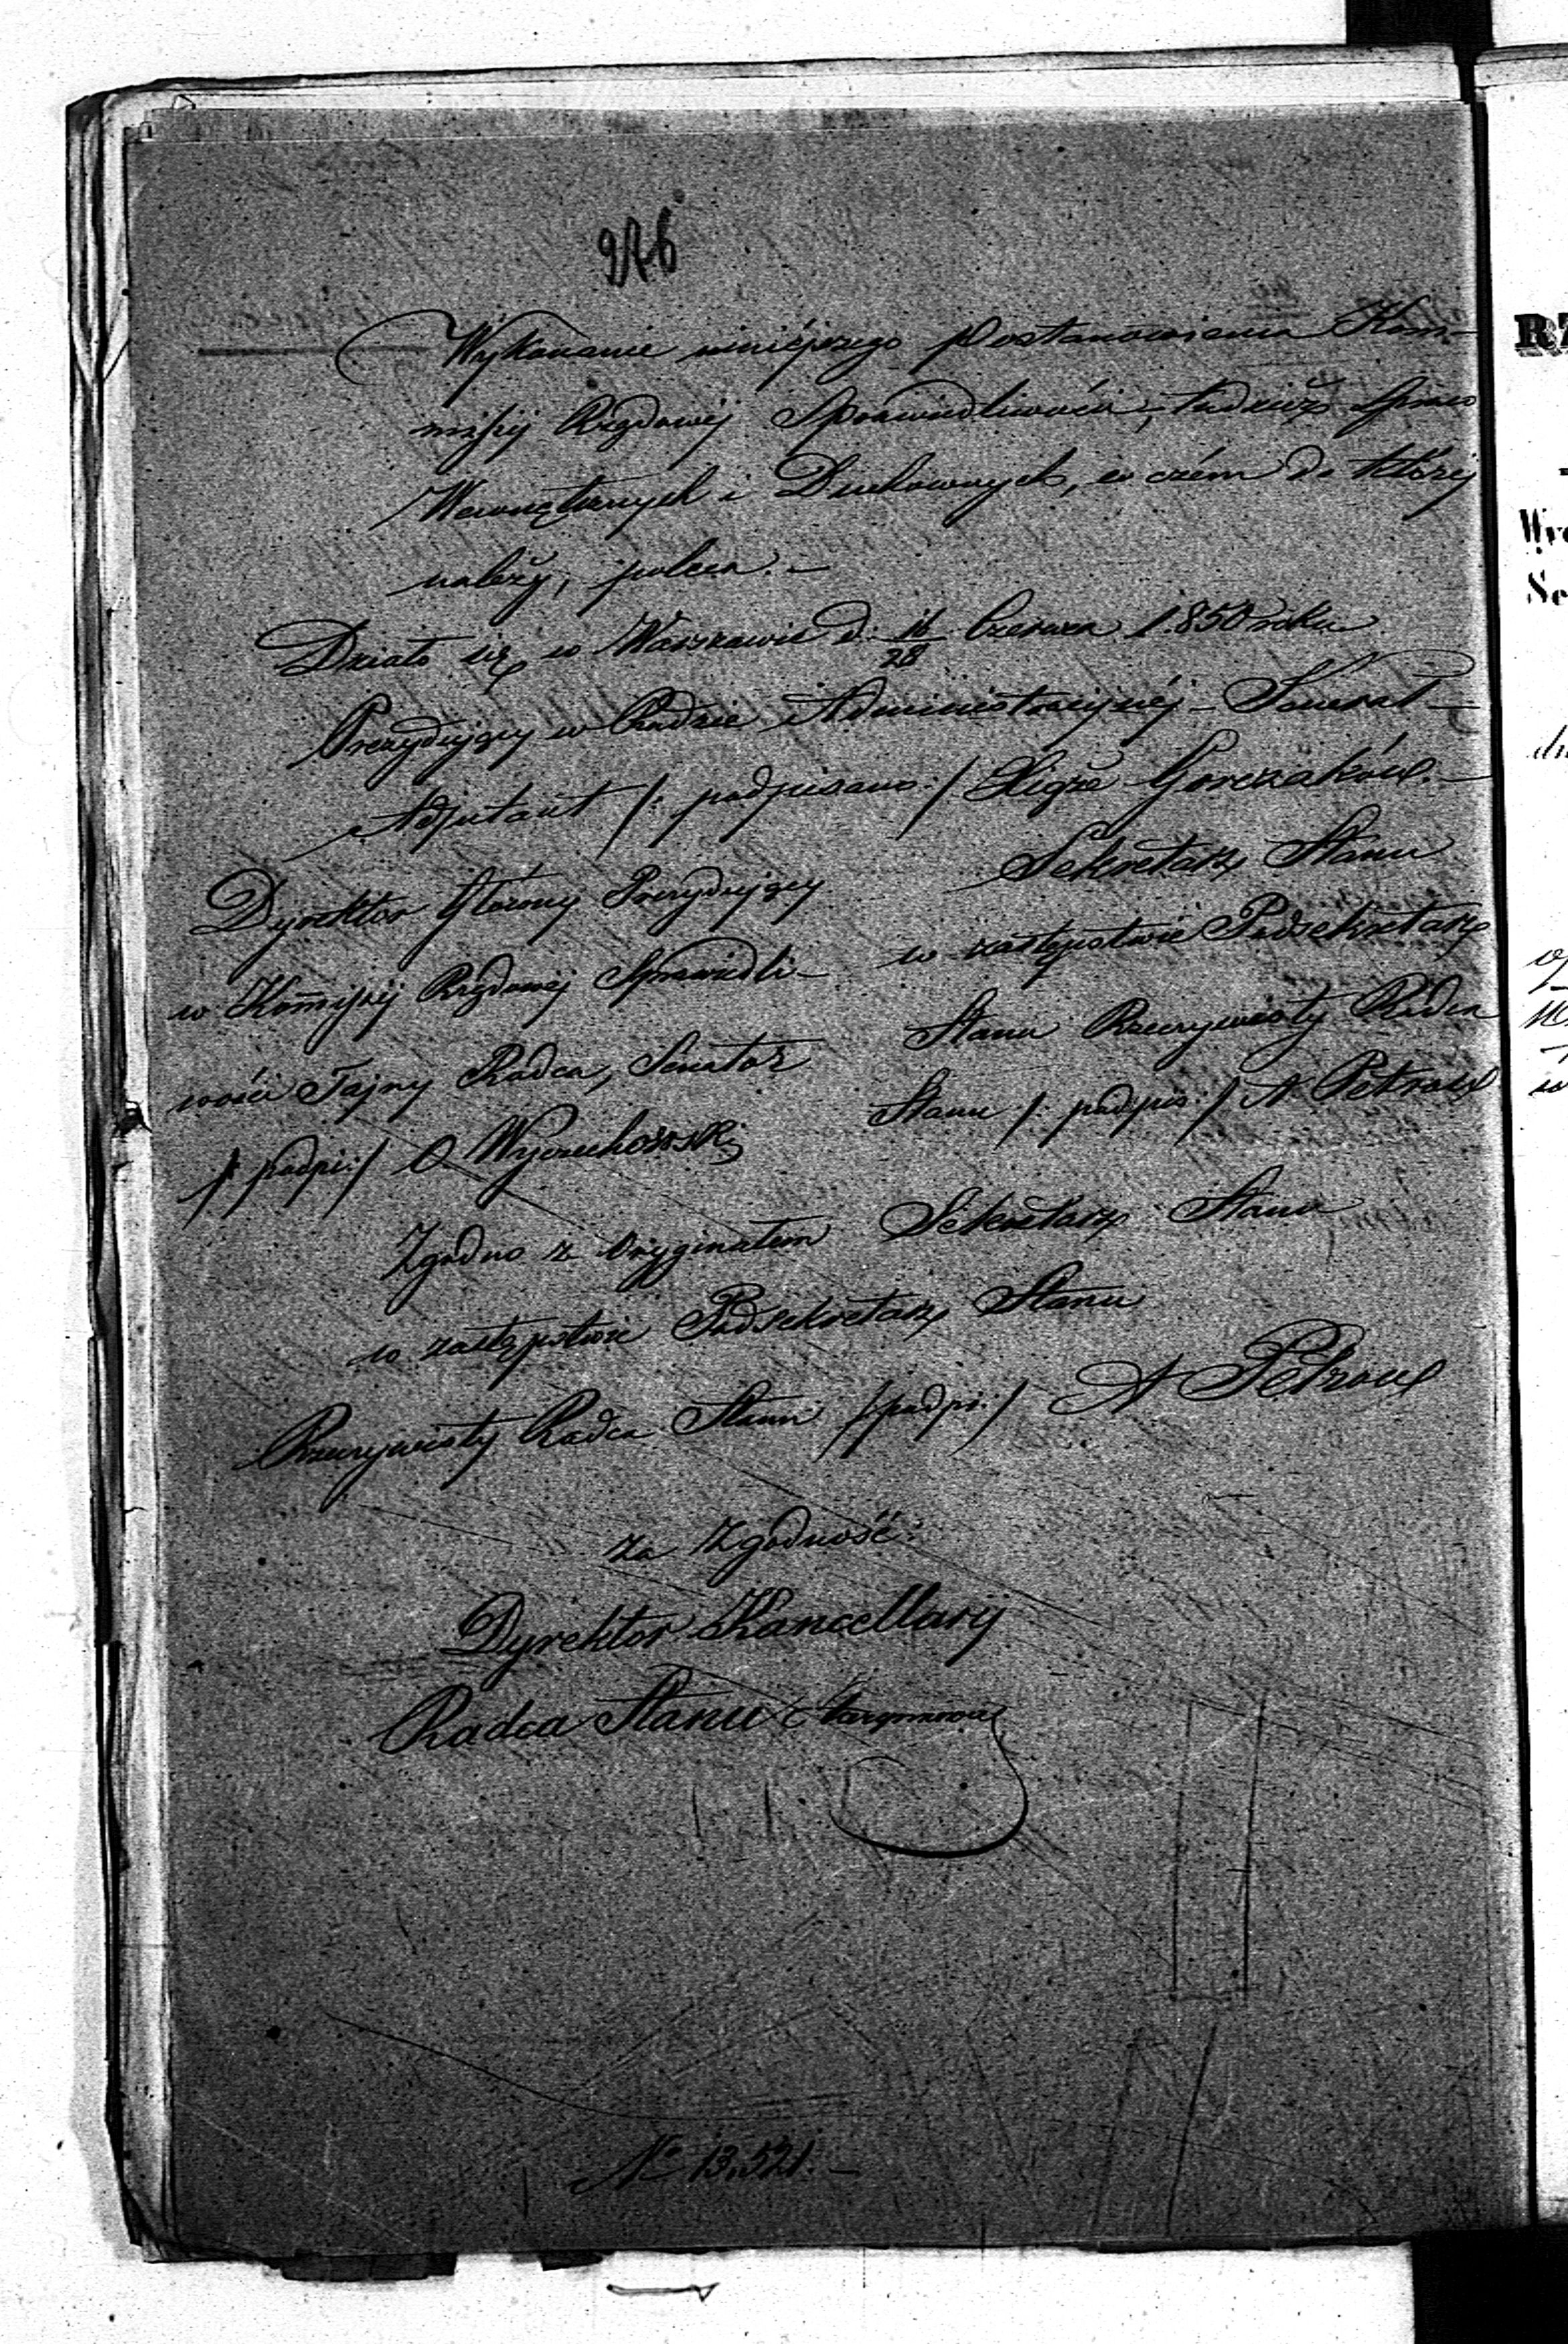 276
Wykonanie niniéjszego Postanowienia Kom-
missyi Rządowéj Sprawiedliwości, tudzież Spraw
Wewnętrznych i Duchownych, w czém do któréj
należy, poleca. —
Działo się w Warszawie d. 16/28 Czerwca 1850 roku
Prezydujący w Radzie Administracyjnéj – Jenerał –
Adjutant /: podpisano :/ Xiąże Gorczaków. –
Dyrektor Główny Prezydujący
w Kommissyi Rządowéj Sprawiedli-
wości Tajny Radca, Senator
/: podpi :/ O Wyczechowski
Sekretarz Stanu
w zastępstwie Podsekretarz
Stanu Rzeczywisty Radca
Stanu /: podpis :/ A Petrow
Zgodno z Oryginałem Sekretarz Stanu
w zastępstwie Podsekretarz Stanu
Rzeczywisty Radca Stanu /: podpi :/ A Petrow
Za Zgodność:
Dyrektor Kancellaryi
Radca Stanu
No 13,521. –